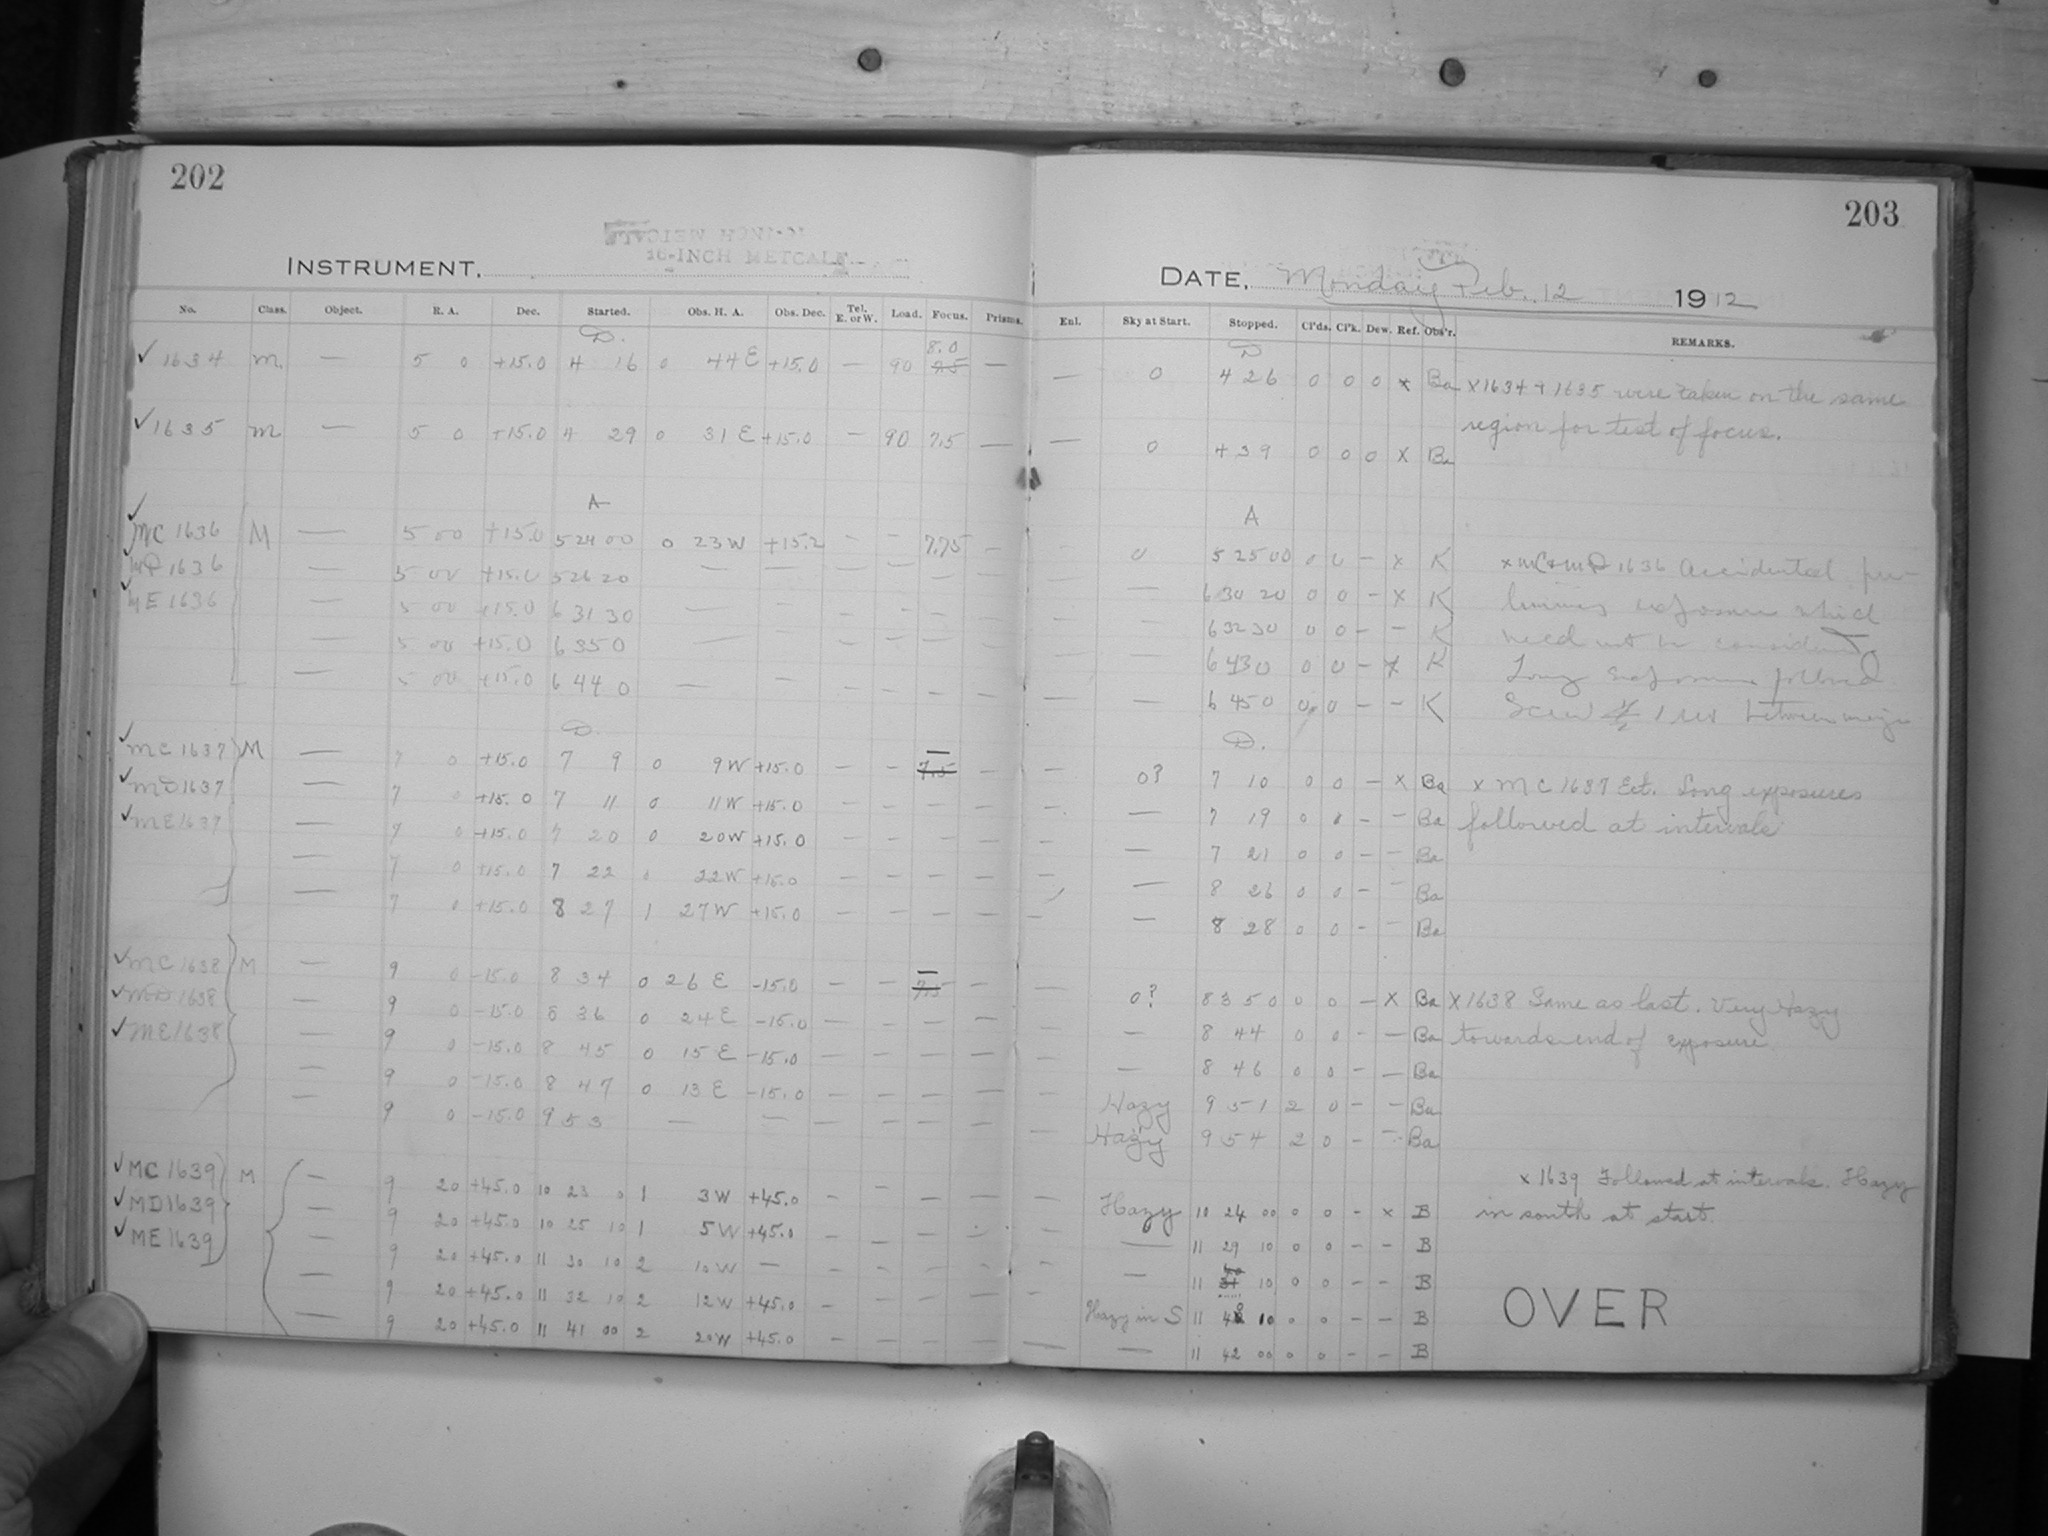 202
16-INCH METCALF
INSTRUMENT,
No. Class. Object. R. A. Dec. Started. Obs. H. A. Obs. Dec. Tel. E. or W. Load. Focus. Prisms.
D.
8.0
✓ 1634 m. — 5 0 +15.0 4 16 0 44 E +15.0 — 90 —
✓ 1635 m — 5 0 +15.0 4 29 0 31 E +15.0 — 90 7.5 —
A
✓ MC 1636 M — 5 00 +15.0 5 24 00 0 23 W +15.2 - - 7.75 -
MD 1636 — 5 00 +15.0 5 26 20 — — - - - -
✓ ME 1636 — 5 00 +15.0 6 31 30 — - - - -
— 5 00 +15.0 6 35 0 — — - - - -
— 5 00 +15.0 6 44 0 — - - - - -
D.
✓ MC 1637 M — 7 0 +15.0 7 9 0 9 W +15.0 — - 7.5 -
✓ MD 1637 — 7 0 +15.0 7 11 0 11 W +15.0 - - - -
✓ ME 1637 — 7 0 +15.0 7 20 0 20 W +15.0 - - - -
— 7 0 +15.0 7 22 0 22 W +15.0 - - - -
— 7 0 +15.0 8 27 1 27 W +15.0 - - - -
✓ MC 1638 M — 9 0 -15.0 8 34 0 26 E -15.0 — — 7.5 —
✓ MD 1638 — 9 0 -15.0 8 36 0 24 E -15.0 - - - -
✓ ME 1638 — 9 0 -15.0 8 45 0 15 E -15.0 - - - -
— 9 0 -15.0 8 47 0 13 E -15.0 - - - -
— 9 0 -15.0 9 53 — — - - - -
✓ MC 1639 M — 9 20 +45.0 10 23 0 1 3 W +45.0 - - - -
✓ MD 1639 — 9 20 +45.0 10 25 10 1 5 W +45.0 - - - -
✓ ME 1639 — 9 20 +45.0 11 30 10 2 10 W — - - - -
— 9 20 +45.0 11 32 10 2 12 W +45.0 - - - -
— 9 20 +45.0 11 41 00 2 20 W +45.0 - - - -
203
DATE, Monday Feb. 12 1912
Enl. Sky at Start. Stopped. Cl'ds. Cl'k. Dew. Ref. Obs'r. REMARKS.
D
— 0 4 26 0 0 0 x Ba x 1634 + 1635 were taken on the same
region for test of focus.
— 0 4 39 0 0 0 x Ba
A
0 5 25 00 0 0 - x K x MC & MD 1636 Accidental
— 6 30 20 0 0 - x K exposure which
6 32 30 0 0 - - K need not be considered
— 6 43 0 0 0 - x K Long Exposure followed
— 6 45 0 0 0 - - K Screw 1 rev between
D.
— 0? 7 10 0 0 - x Ba x MC 1637 Ect. Long exposures
— 7 19 0 0 - - Ba followed at intervals
— 7 21 0 0 - - Ba
— 8 26 0 0 - - Ba
— 8 28 0 0 - - Ba
— 0? 8 35 0 0 0 - x Ba x 1638 Same as last. Very Hazy
— 8 44 0 0 - - Ba towards end of exposure.
— 8 46 0 0 - - Ba
— Hazy 9 51 2 0 - - Ba
— Hazy 9 54 2 0 - - Ba
x 1639 Followed at intervals. Hazy
— Hazy 10 24 00 0 0 - x B in south at start.
— 11 29 10 0 0 - - B
— 11 10 0 0 - - B
Hazy in S 11 40 10 0 0 - - B
— 11 42 00 0 0 - - B
OVER